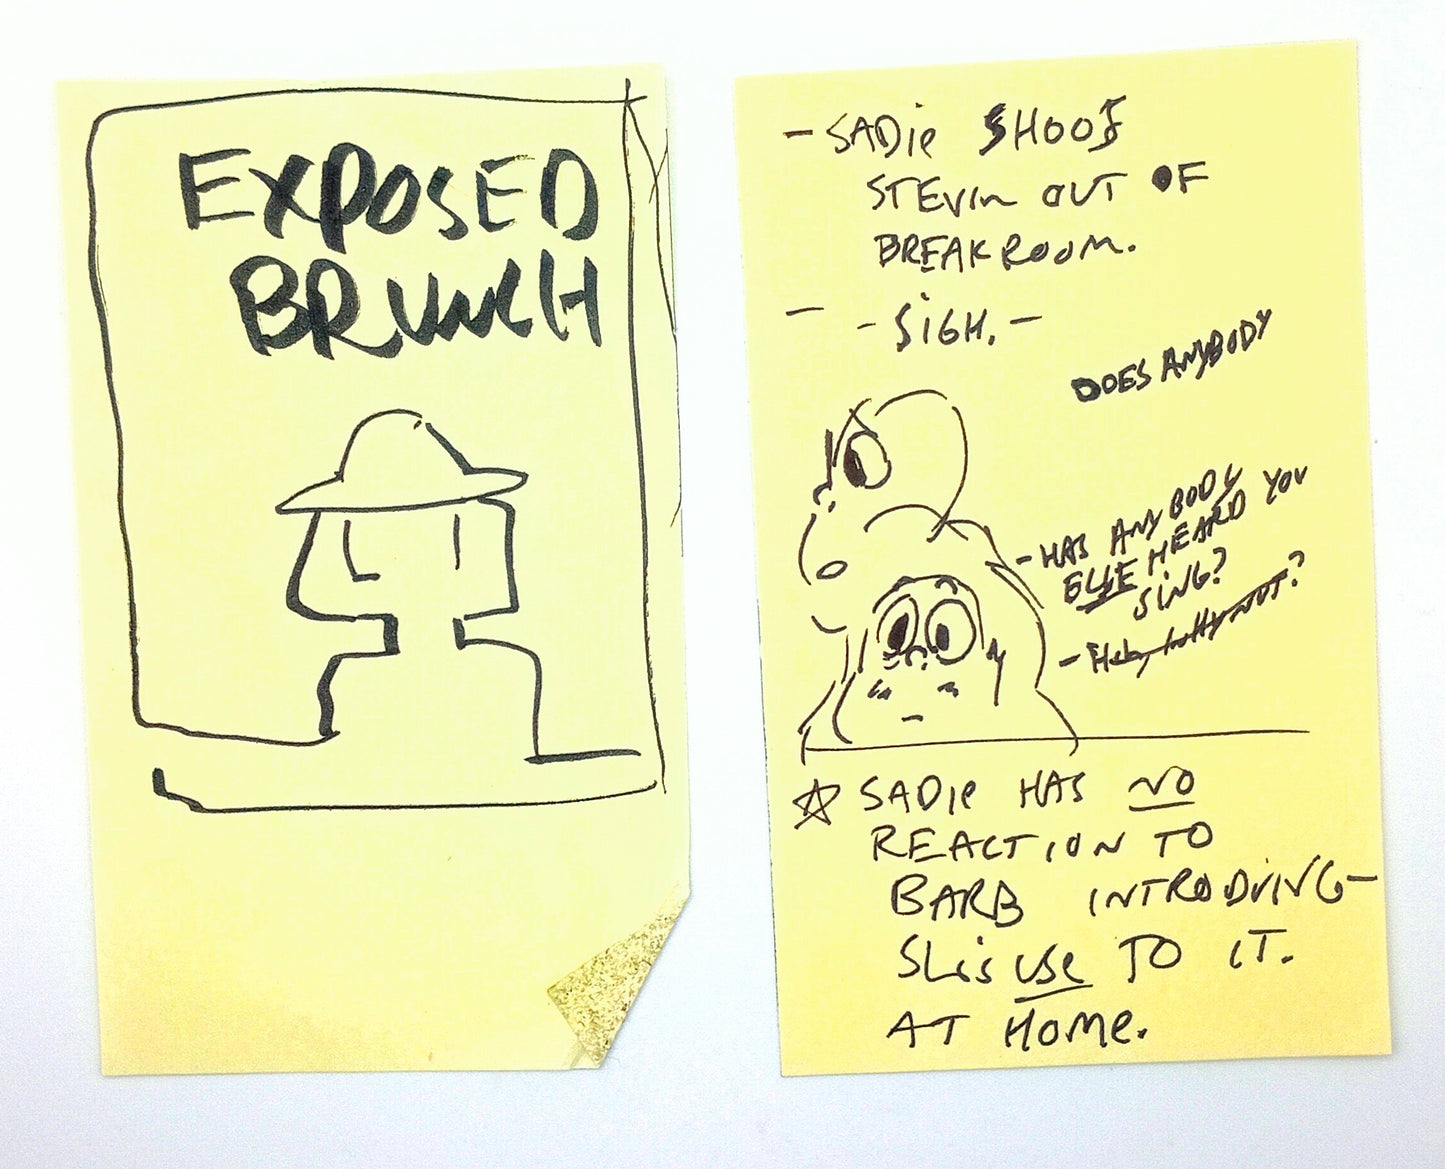 EXPOSED
BRUNCH
- SADIE SHOOS
STEVIN OUT OF
BREAKROOM.
- - SIGH. -
DOES ANYBODY
- HAS ANYBODY
ELSE HEARD YOU
SING?
- not?
☆ SADIE HAS NO
REACTION TO
BARB INTRODUING -
SHE'S USE TO IT.
AT HOME.